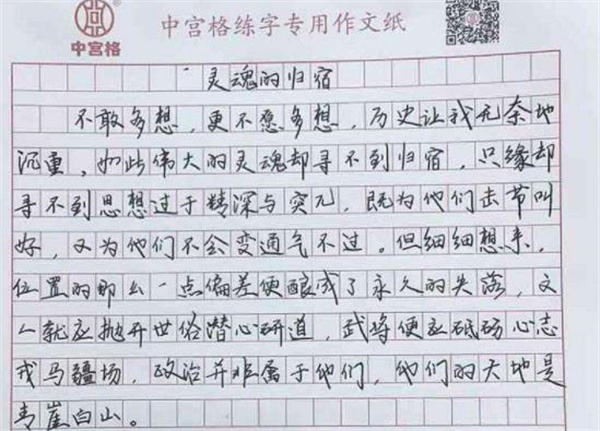 中宫格
中宫格练字专用作文纸
灵魂的归宿
不敢多想，更不愿多想，历史让我无奈地
沉重，如此伟大的灵魂却寻不到归宿，只缘却
寻不到思想过于精深与突兀，既为他们击节叫
好，又为他们不会变通气不过。但细细想来，
位置的那么一点偏差便酿成了永久的失落，文
人就应抛开世俗潜心研道，武将便应砥砺心志
戎马疆场，政治并非属于他们，他们的天地是
青崖白山。